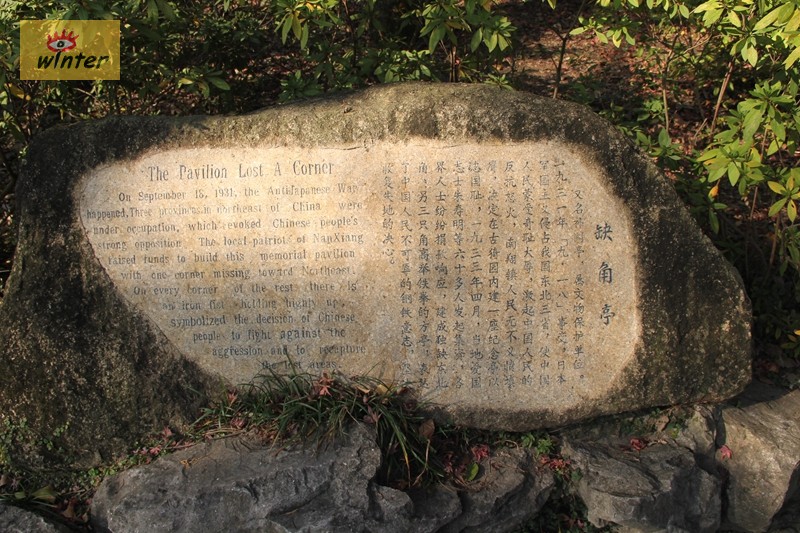 wInter
The Pavilion Lost A Corner
On September 18, 1931, the Anti-Japanese War
happened. Three provinces in northeast of China were
under occupation, which revoked Chinese people's
strong opposition. The local patriot of NanXiang
raised funds to build this memorial pavilion
with one corner missing toward Northeast.
On every corner of the rest there is
an iron fist holding highly up,
symbolized the decision of Chinese
people to fight against the
aggression and to recapture
the lost areas.
缺角亭
又名补阙亭,县文物保护单位。
一九三一年「九·一八」事变,日本
军国主义侵占我国东北三省,使中国
人民蒙受奇耻大辱,激起中国人民的
反抗怒火,南翔镇人民无不义愤填
膺,决定在古猗园内建一座纪念亭以
国耻,一九三三年四月,当地爱国
志士朱寿明等六十多人发起集资,各
界人士纷纷捐款响应,建成独缺东北
角,另三只角高举铁拳的方亭,表
了中国人民不可辱的钢铁意志,
收复失地的决心。